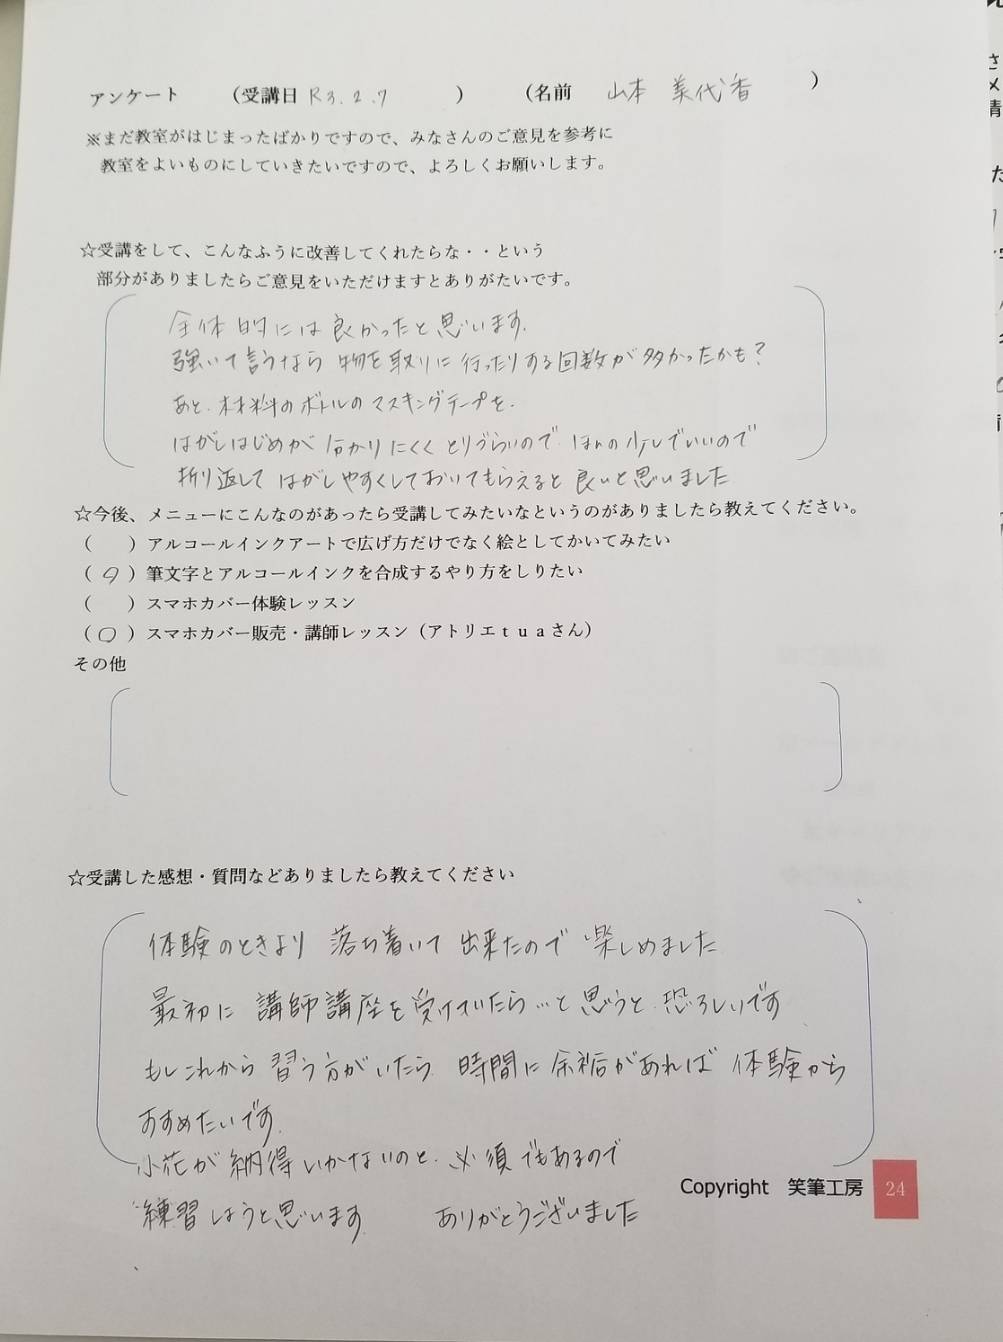 アンケート （受講日 R3.2.7 ） （名前 山本 美代香 ）
※まだ教室がはじまったばかりですので、みなさんのご意見を参考に
教室をよいものにしていきたいですので、よろしくお願いします。
☆受講をして、こんなふうに改善してくれたらな・・という
部分がありましたらご意見をいただけますとありがたいです。
全体的には良かったと思います.
強いて言うなら 物を取りに行ったりする回数が多かったかも?
あと.材料のボトルのマスキングテープを.
はがしはじめが分かりにくくとりづらいので ほんの少しでいいので
折り返してはがしやすくしておいてもらえると良いと思いました
☆今後、メニューにこんなのがあったら受講してみたいなというのがありましたら教えてください。
（ ）アルコールインクアートで広げ方だけでなく絵としてかいてみたい
（○）筆文字とアルコールインクを合成するやり方をしりたい
（ ）スマホカバー体験レッスン
（○）スマホカバー販売・講師レッスン（アトリエｔｕａさん）
その他
☆受講した感想・質問などありましたら教えてください
体験のときより 落ち着いて 出来たので 楽しめました
最初に 講師講座を受けていたら…と思うと.恐ろしいです
もしこれから 習う方がいたら 時間に余裕があれば 体験から
おすすめたいです.
小花が納得いかないのと.必須でもあるので
練習しようと思います. ありがとうございました
Copyright 笑筆工房 24